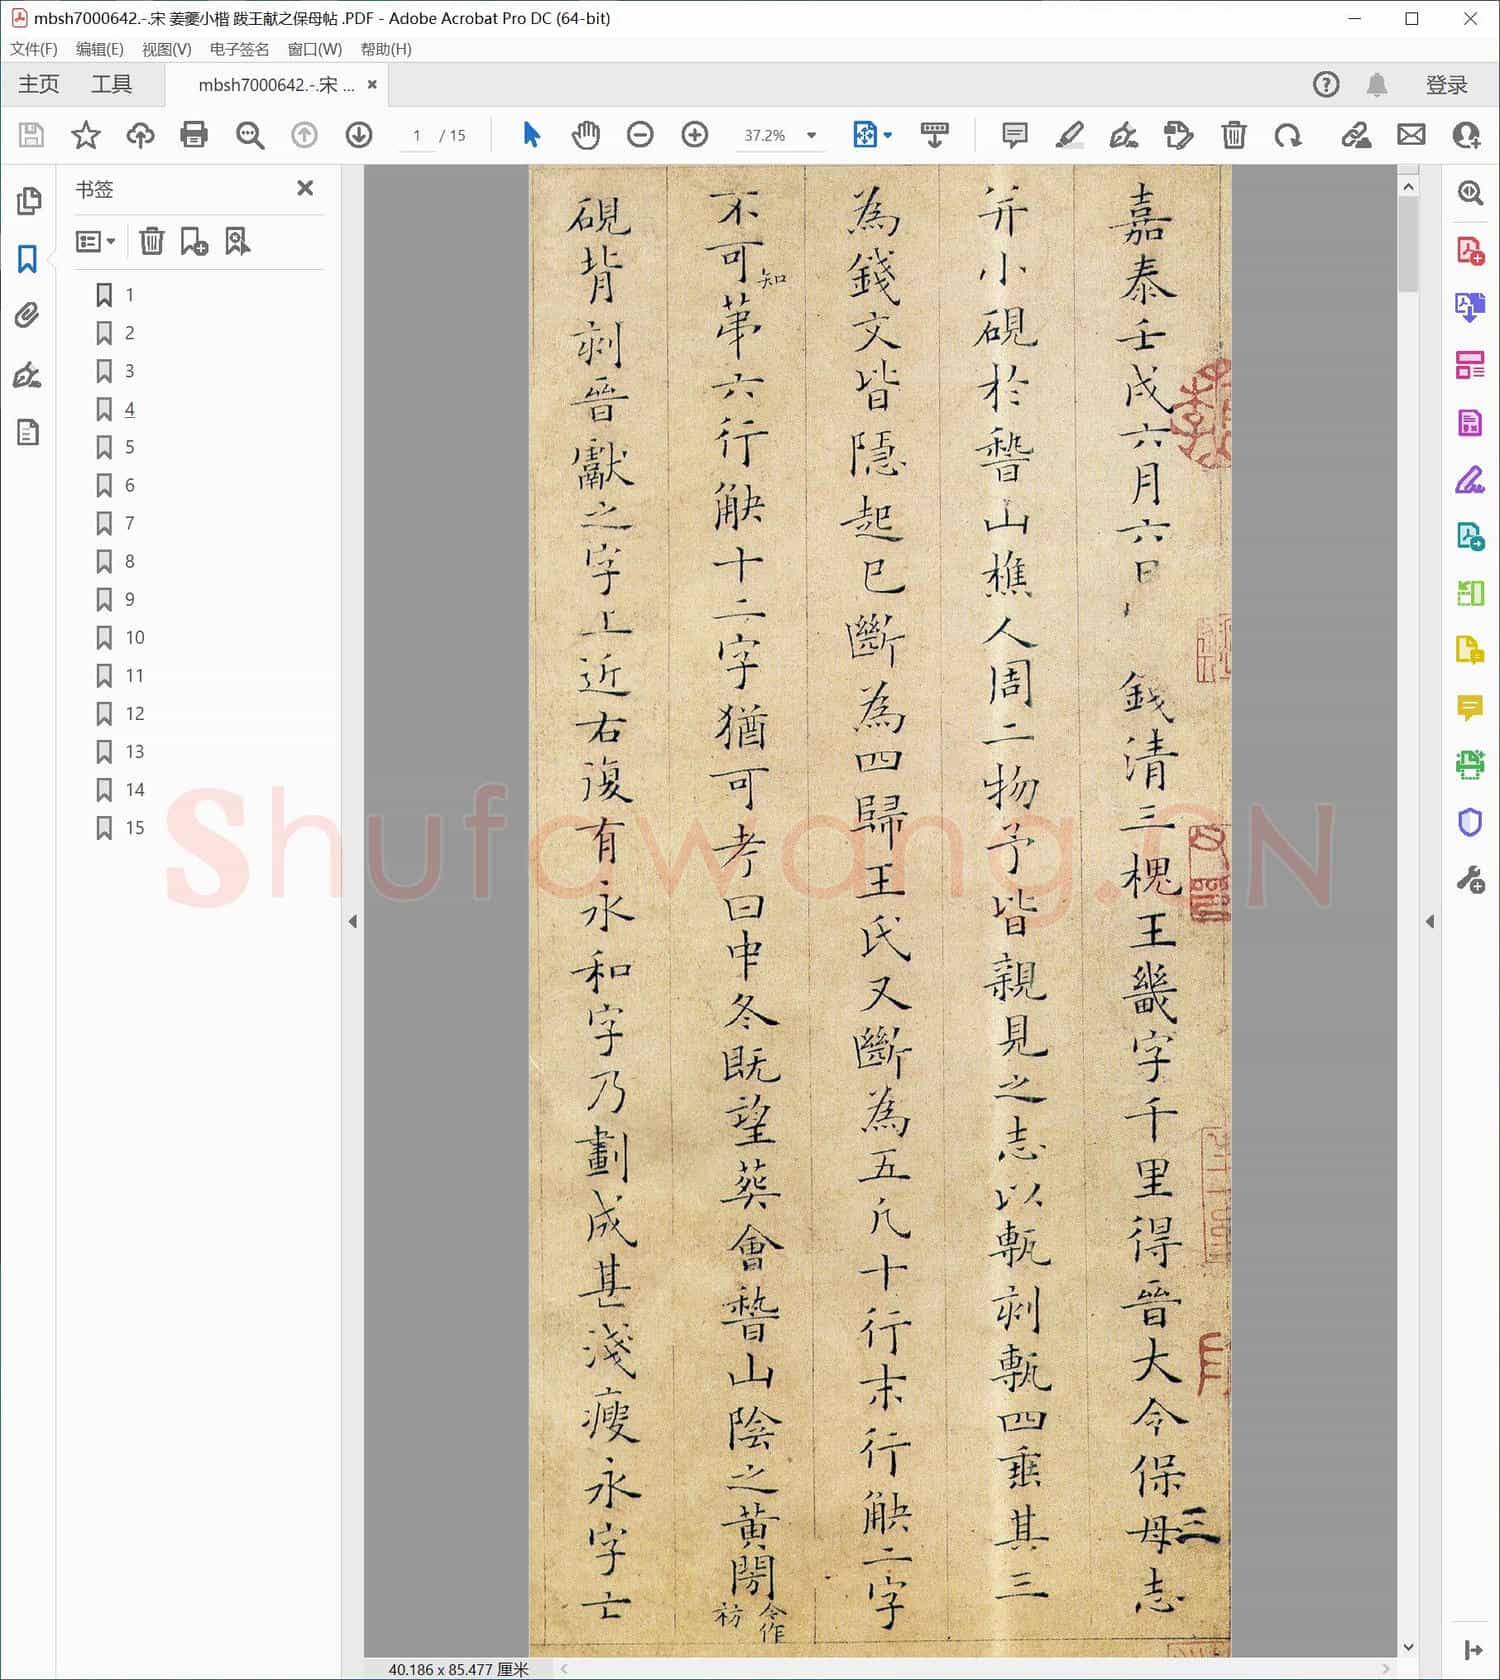 mbsh7000642.-.宋 姜夔小楷 跋王献之保母帖 .PDF - Adobe Acrobat Pro DC (64-bit)
文件(F) 编辑(E) 视图(V) 电子签名 窗口(W) 帮助(H)
主页 工具 mbsh7000642.-.宋 ... × 登录
1 / 15 37.2%
书签
1
2
3
4
5
6
7
8
9
10
11
12
13
14
15
嘉泰壬戌六月六日 錢清三槐王畿字千里得晉大令保母志三
并小硯於稽山樵人周二物予皆親見之志以甎刻甎四垂其三
為錢文皆隱起已斷為四歸王氏又斷為五凡十行末行缺二字
不可知第六行缺十二字猶可考曰中冬既望葬會稽山陰之黃閍今作祊
硯背刻晉獻之字上近右復有永和字乃劃成甚淺瘦永字亡
Shufawang.CN
40.186 x 85.477 厘米